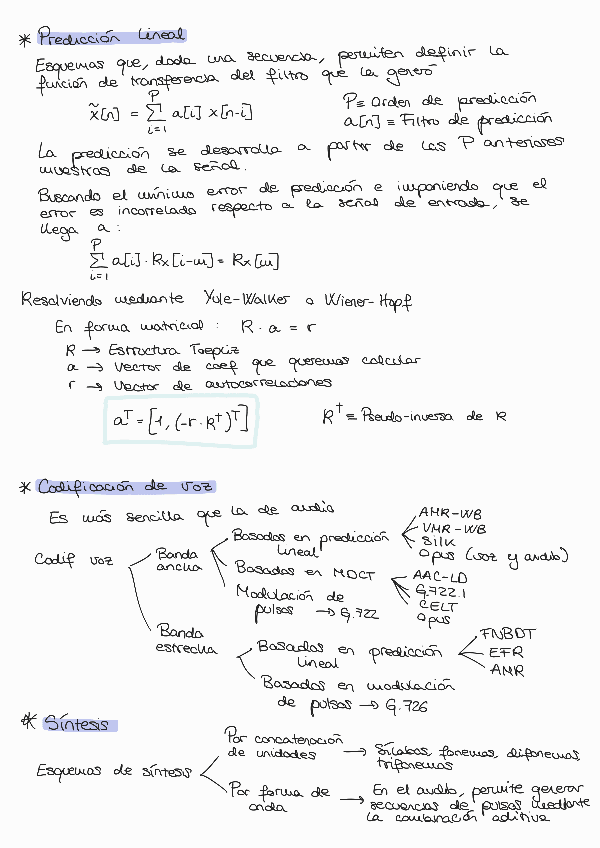 * Predicción lineal
Esquemas que, dada una secuencia, permiten definir la
función de transferencia del filtro que la generó
x̃[n] = Σ_{i=1}^{P} a[i] x[n-i]
P ≡ Orden de predicción
a[n] ≡ Filtro de predicción
La predicción se desarrolla a partir de las P anteriores
muestras de la señal.
Buscando el mínimo error de predicción e imponiendo que el
error es incorrelado respecto a la señal de entrada, se
llega a:
Σ_{i=1}^{P} a[i] · Rx[i-m] = Rx[m]
Resolviendo mediante Yule-Walker o Wiener-Hopf
En forma matricial : R · a = r
R → Estructura Toepliz
a → Vector de coef que queremos calcular
r → Vector de autocorrelaciones
a^T = [1, (-r · R†)^T]
R† ≡ Pseudo-inversa de R
* Codificación de voz
Es más sencilla que la de audio
Codif voz
Banda
ancha
Basados en predicción
lineal
AMR-WB
VMR-WB
Silk
Opus (voz y audio)
Basados en MDCT
AAC-LD
G.722.1
CELT
Opus
Modulación de
pulsos → G.722
Banda
estrecha
Basados en predicción
lineal
FNBDT
EFR
AMR
Basados en modulación
de pulsos → G.726
* Síntesis
Esquemas de síntesis
Por concatenación
de unidades
→ Sílabas, fonemas, difonemas
trifonemas
Por forma de
onda
→ En el audio, permite generar
secuencias de pulsos mediante
la combinación aditiva